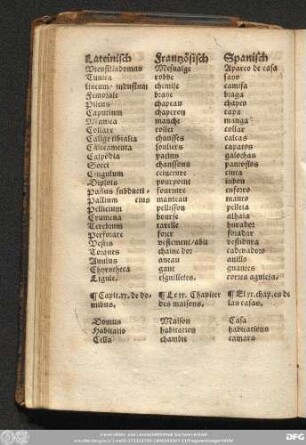 Lateinisch Französisch Spanisch
Vtensilladomus Mesnaige Aparco de casa
Tunica robbe sayo
lineum/ indusium chemise camisa
Femorale braye braga
Pileus chapeau chapeo
Caputium chaperon capa
Manica manche manga
Collare coller collar
Calige tibialia chausses calcas
Calceamenta souliers caparos
Calpodia patins galochas
Socci chaussons pantosos
Cingulum ceincture cinta
Diplois pourpoint iubon
fourrure enforro
Pallium manteau manto
Pelliceum pellisson pelleta
Crumena bourse alhaia
Terebrum tarelle furador
Perforare forer foradar
Vestis vestement/ abit vestidura
Torques chaine dor cadenadoro
Anulus aneau anillo
Chyrotheca gant guantes
Ligule. esguillettes. correa agujeta.
¶ Capit.xv. de domibus. ¶ Le xv. Chapiter des maisons. ¶ El xv. chap. en de las casas.
Domus Maison Casa
Habitatio habitation habitations
Cella chambre camara